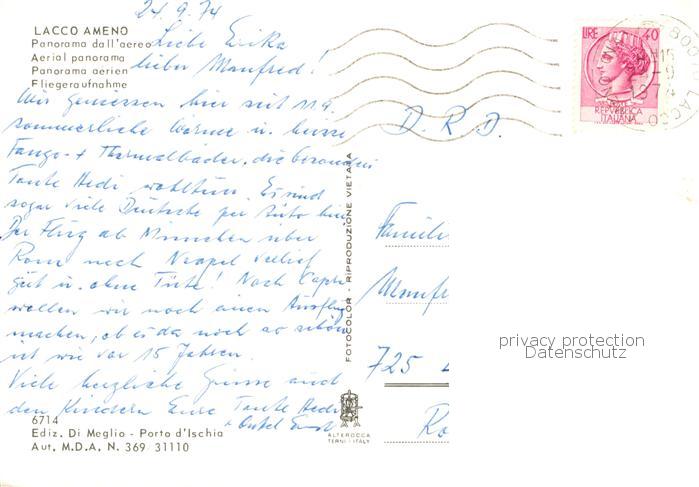 24.9.74
LACCO AMENO
Panorama dall'aereo
Aerial panorama
Panorama aerien
Fliegeraufnahme
Liebe Erika
lieber Manfred!
Wir geniessen hier seit 11.9.
sommerliche Wärme u. heisse
Fango- + Thermalbäder, die besonders
Tante Hedi wohltun. Es sind
sogar viele Deutsche per Auto hier
Der Flug ab München über
Rom nach Neapel verlief
gut u. ohne Tüte! Nach Capri
wollen wir noch einen Ausflug
machen, ob es da noch so schön
ist wie vor 15 Jahren.
Viele herzliche Grüsse auch
den Kindern Eure Tante Hedi
+ Onkel
6714
Ediz. Di Meglio - Porto d'Ischia
Aut. M.D.A. N. 369/31110
FOTOCOLOR - RIPRODUZIONE VIETATA
ALTEROCCA
TERNI - ITALY
LIRE 40
REPVBBLICA
ITALIANA
LACCO
D. R. D.
Famili
Manfr
725
Ro
privacy protection
Datenschutz